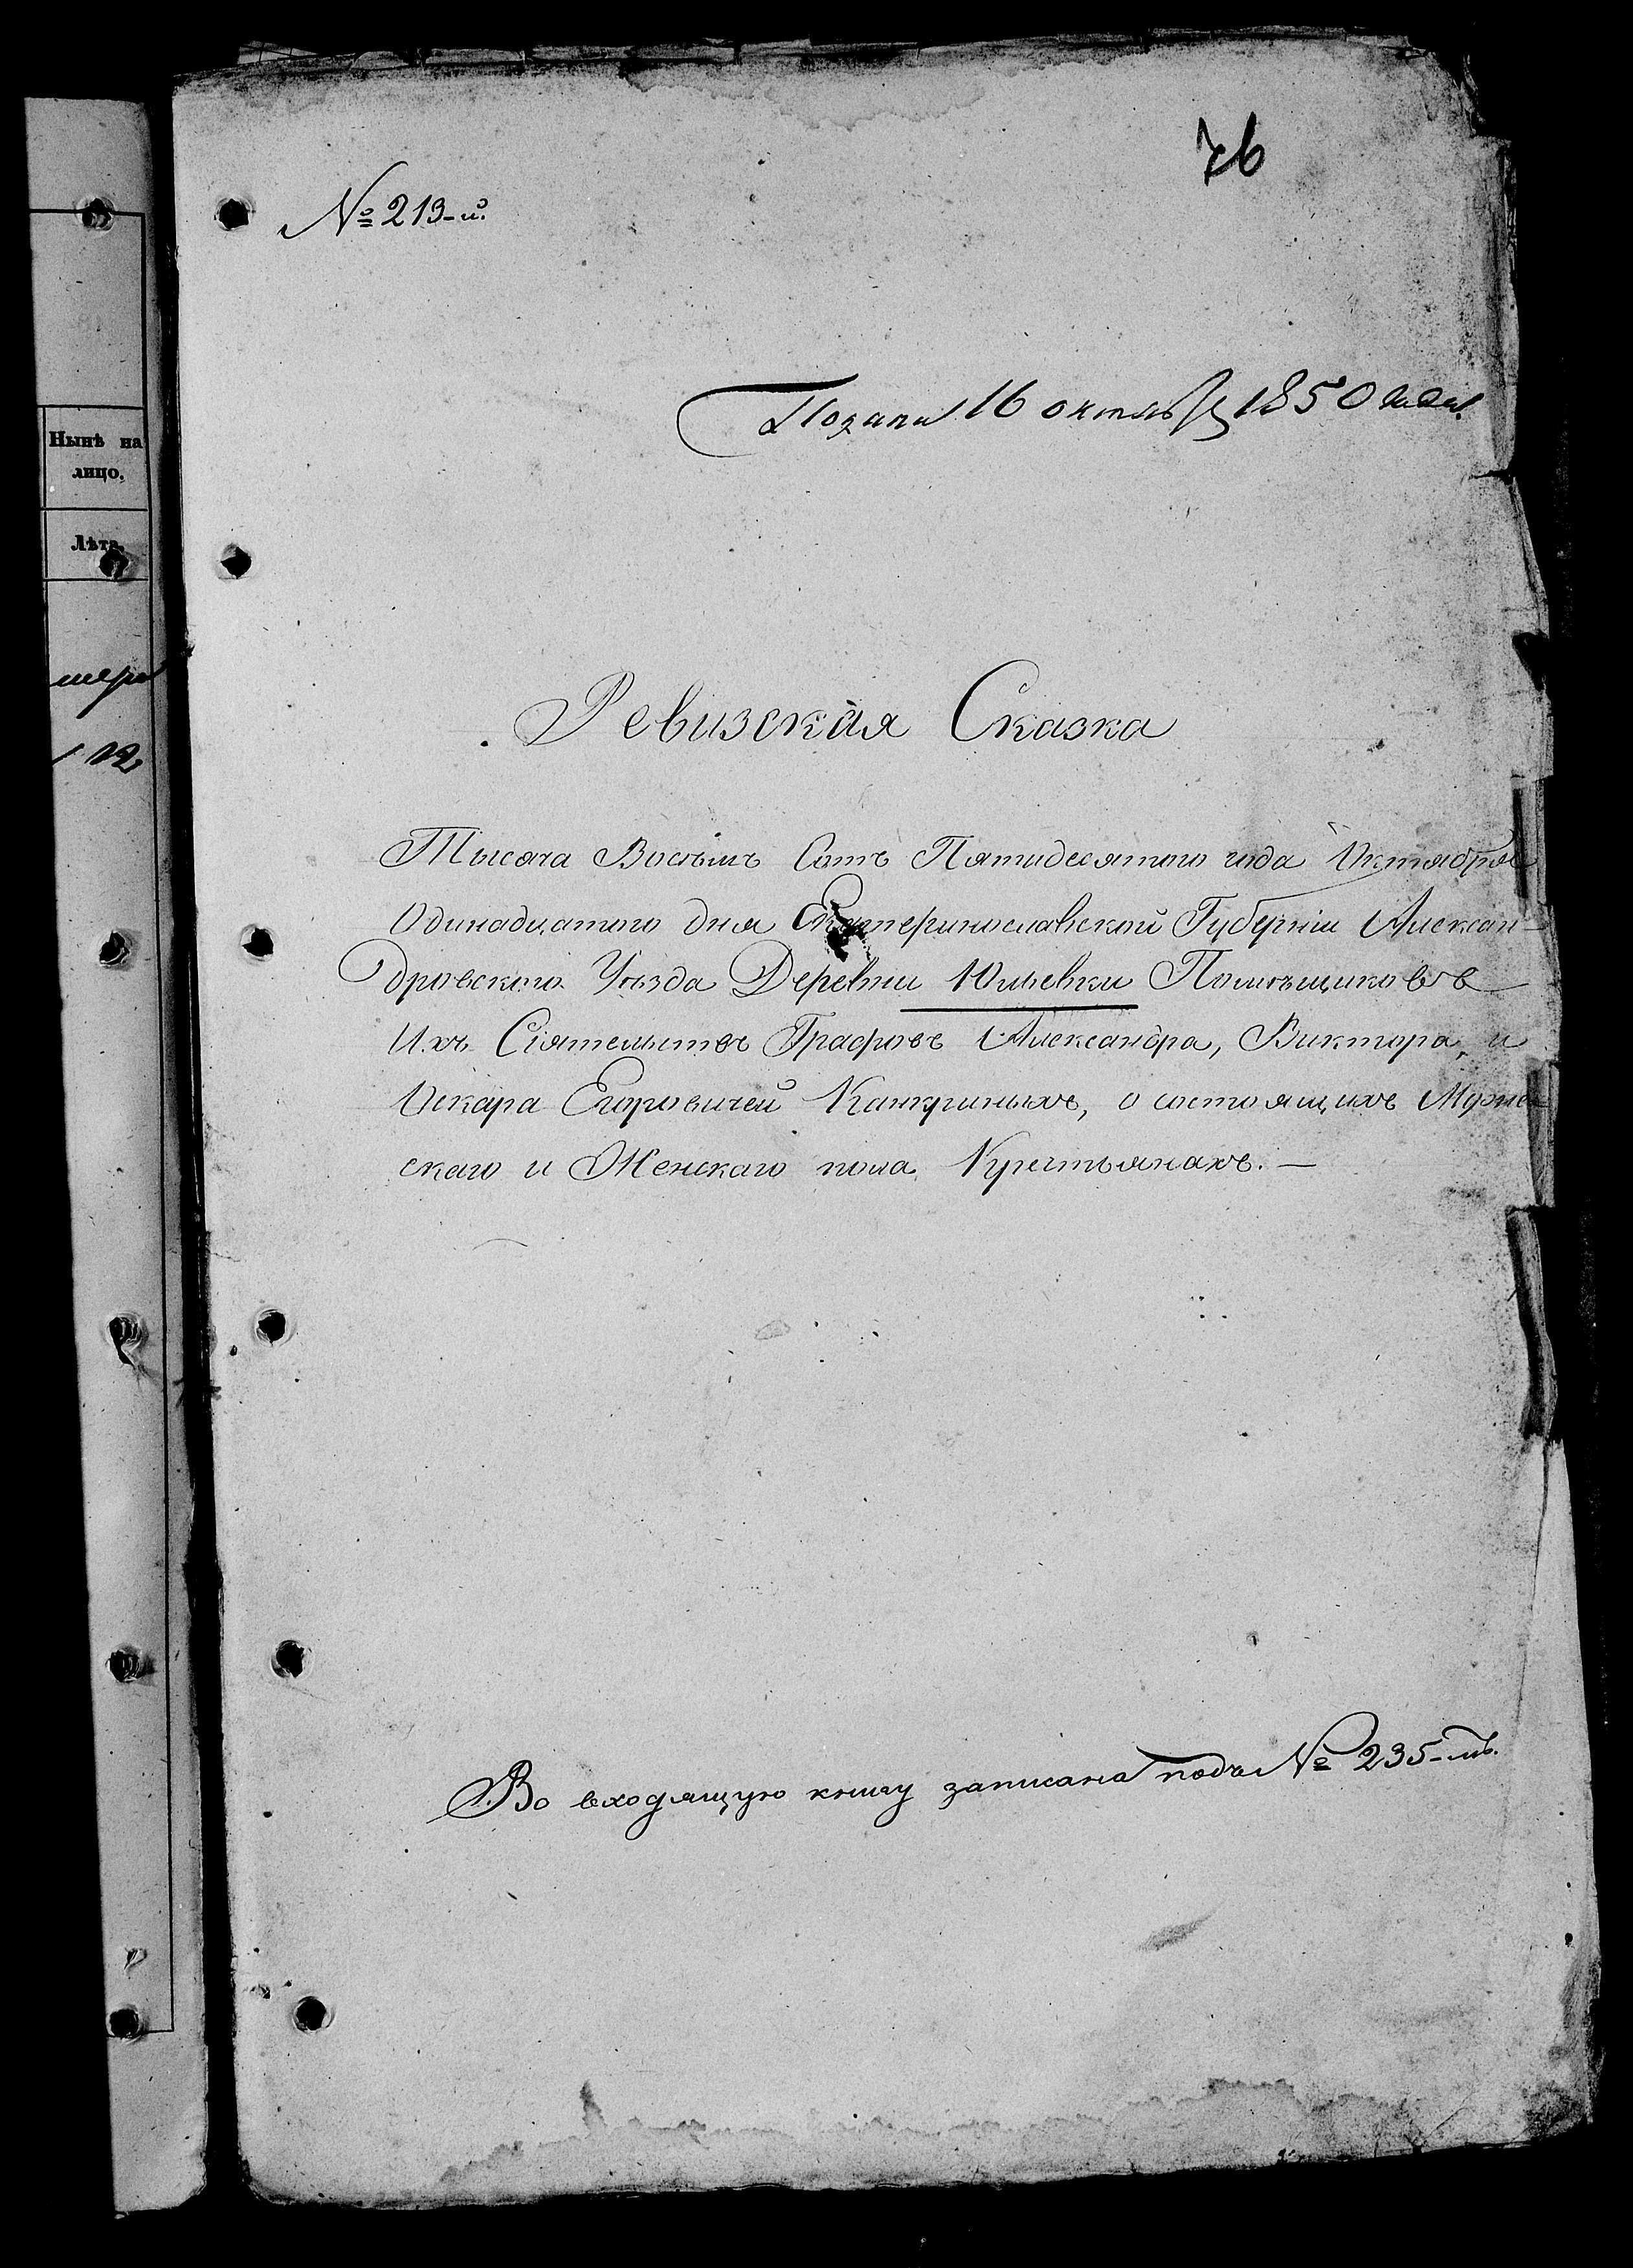 76
№ 213-й.
Подана 16 октября 1850 года.
Нынѣ на
лицо.
Лѣта.
Ревизская Сказка
Тысяча Восѣмъ Сотъ Пятидесятого года Октября
Одинадцатого дня Екатеринославской Губерніи Алексан-
дровского Уѣзда Деревни Юльевки Помѣщиковъ
Ихъ Сіятельствъ Графовъ Александра, Виктора, и
Оскара Егоровичей Канкриныхъ, о состоящихъ Муже-
скаго и Женскаго пола Крестьянахъ. —
Во входящую книгу записана подъ № 235-мъ.